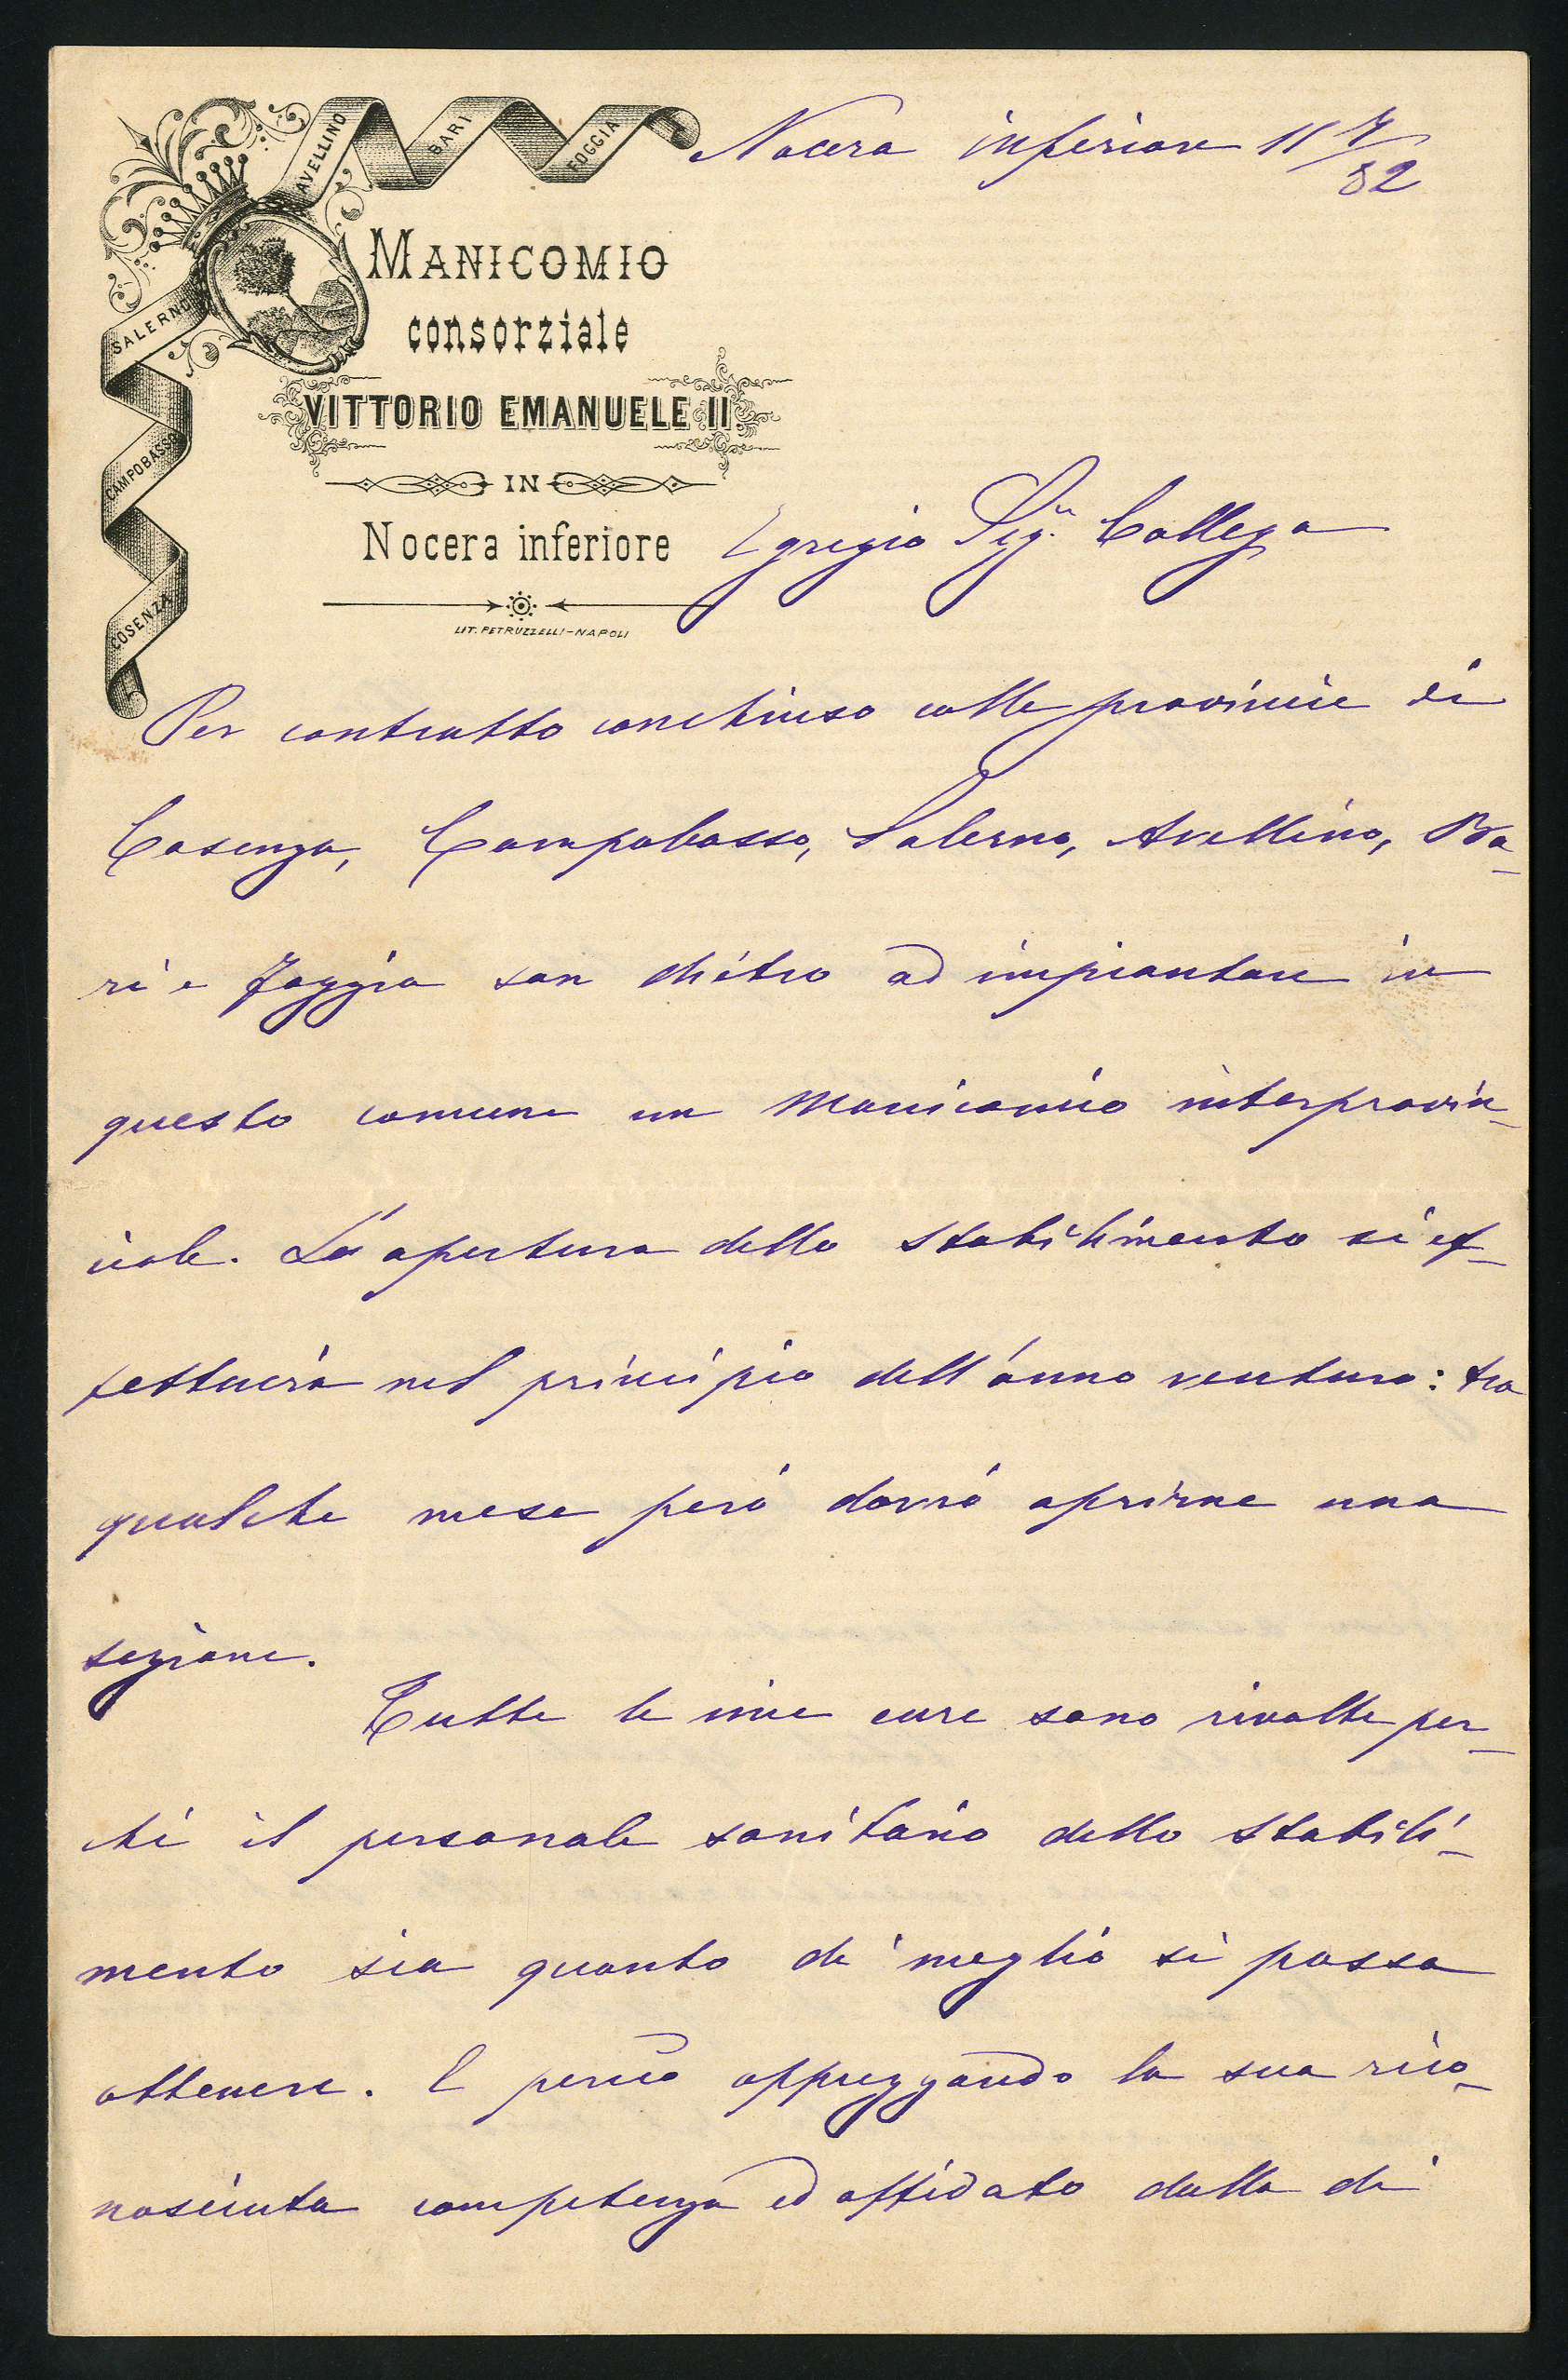 AVELLINO
BARI
FOGGIA
SALERNO
CAMPOBASSO
COSENZA
Nocera inferiore 11 7/82
MANICOMIO
consorziale
VITTORIO EMANUELE II.
IN
Nocera inferiore
LIT. PETRUZZELLI-NAPOLI
Egregio Sig.r Collega
Per contratto conchiuso colle provincie di
Cosenza, Campobasso, Salerno, Avellino, Ba-
ri e Foggia son dietro ad impiantare in
questo comune un Manicomio interprovin-
ciale. L'apertura dello stabilimento si ef-
fettuerà nel principio dell'anno venturo: tra
qualche mese però dovrò aprirne una
sezione.
Tutte le mie cure sono rivolte per-
chè il personale sanitario dello stabili-
mento sia quanto di meglio si possa
ottenere. E perciò apprezzando la sua rico-
nosciuta competenza ed affidato dalla di